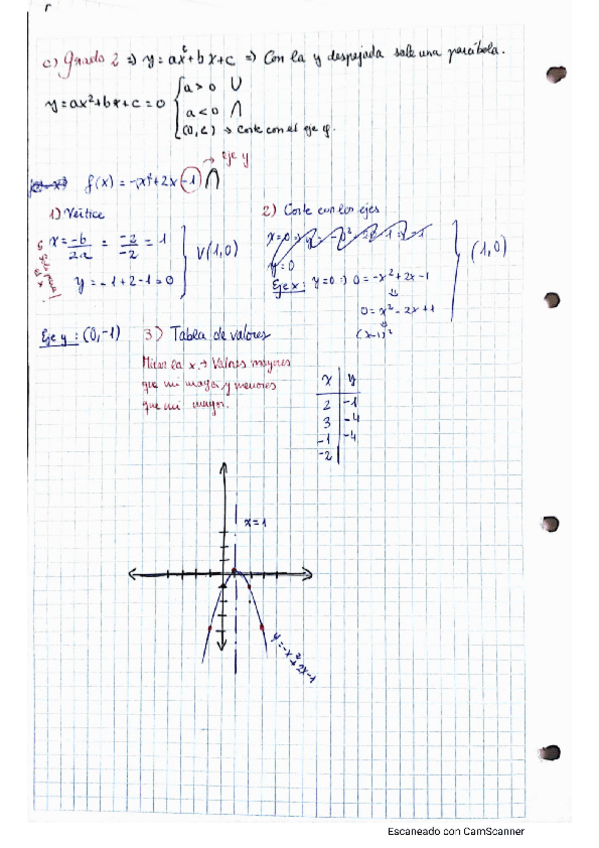 c) Grado 2 => y = ax²+bx+c => Con la y despejada sale una parábola.
y=ax²+bx+c=0 { a>0 ∪
a<0 ∩
(0,c) → Corte con el eje y.
→ Eje y
f(x) = -x²+2x-1 ∩
1) Vértice
x = -b/2·a = -2/-2 = 1
y = -1+2-1=0
V(1,0)
2) Corte con los ejes
y=0
Eje x: y=0 => 0=-x²+2x-1
0=x²-2x+1
(x-1)²
(1,0)
Eje y: (0,-1)
3) Tabla de valores
Mirar la x → Valores mayores
que mi mayor y menores
que mi mayor.
x | y
2 | -1
3 | -4
-1 | -4
-2 |
x=1
y=-x²+2x-1
Escaneado con CamScanner